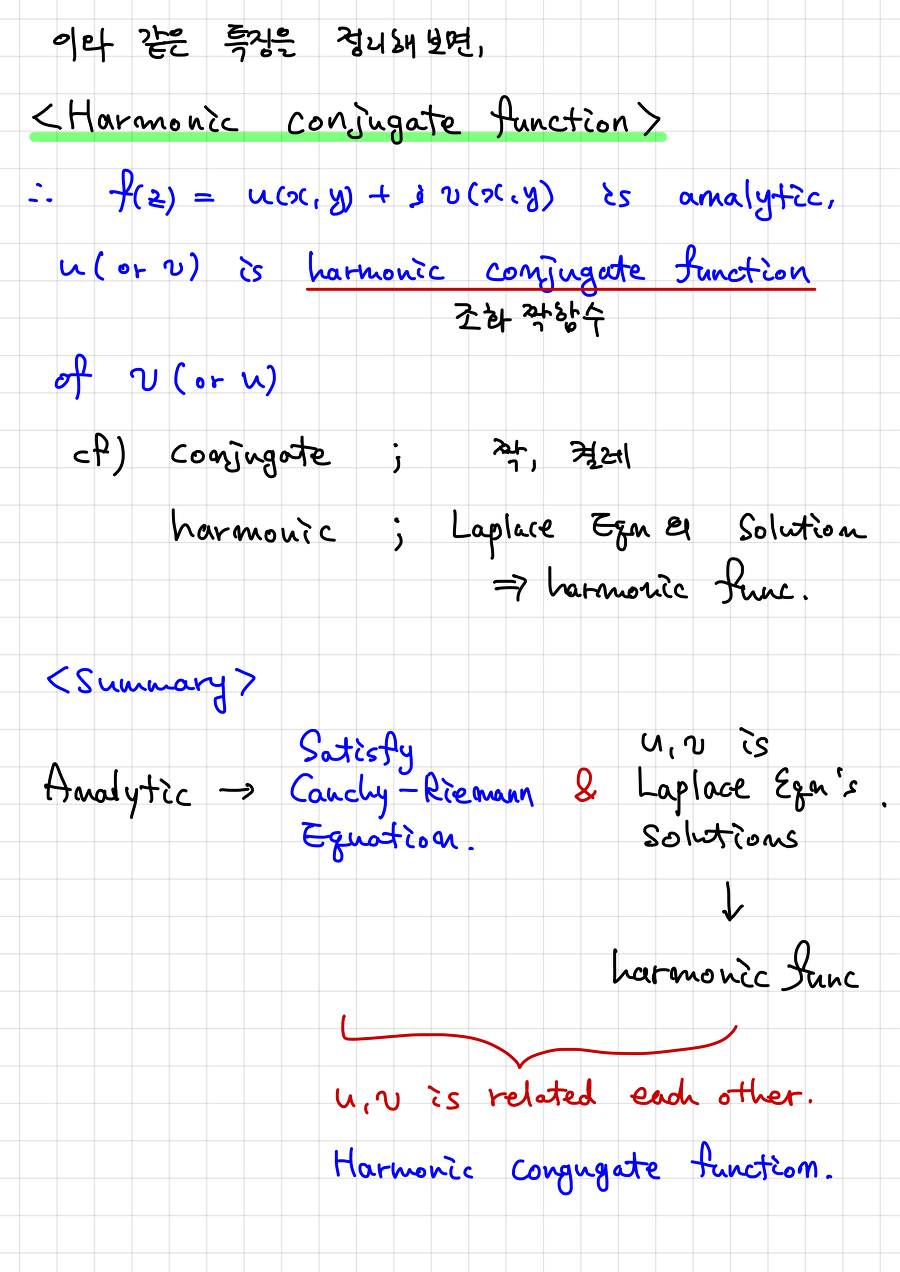 이라 같은 특징을 정리해보면,
<Harmonic conjugate function>
∴ f(z) = u(x,y) + i v(x,y) is analytic,
u(or v) is harmonic conjugate function
조화 짝함수
of v(or u)
cf) conjugate ; 짝, 켤레
harmonic ; Laplace Eqn의 Solution
⇒ harmonic func.
<Summary>
Analytic → Satisfy Cauchy-Riemann Equation. & u,v is Laplace Eqn's. solutions
↓
harmonic func
u,v is related each other.
Harmonic congugate function.